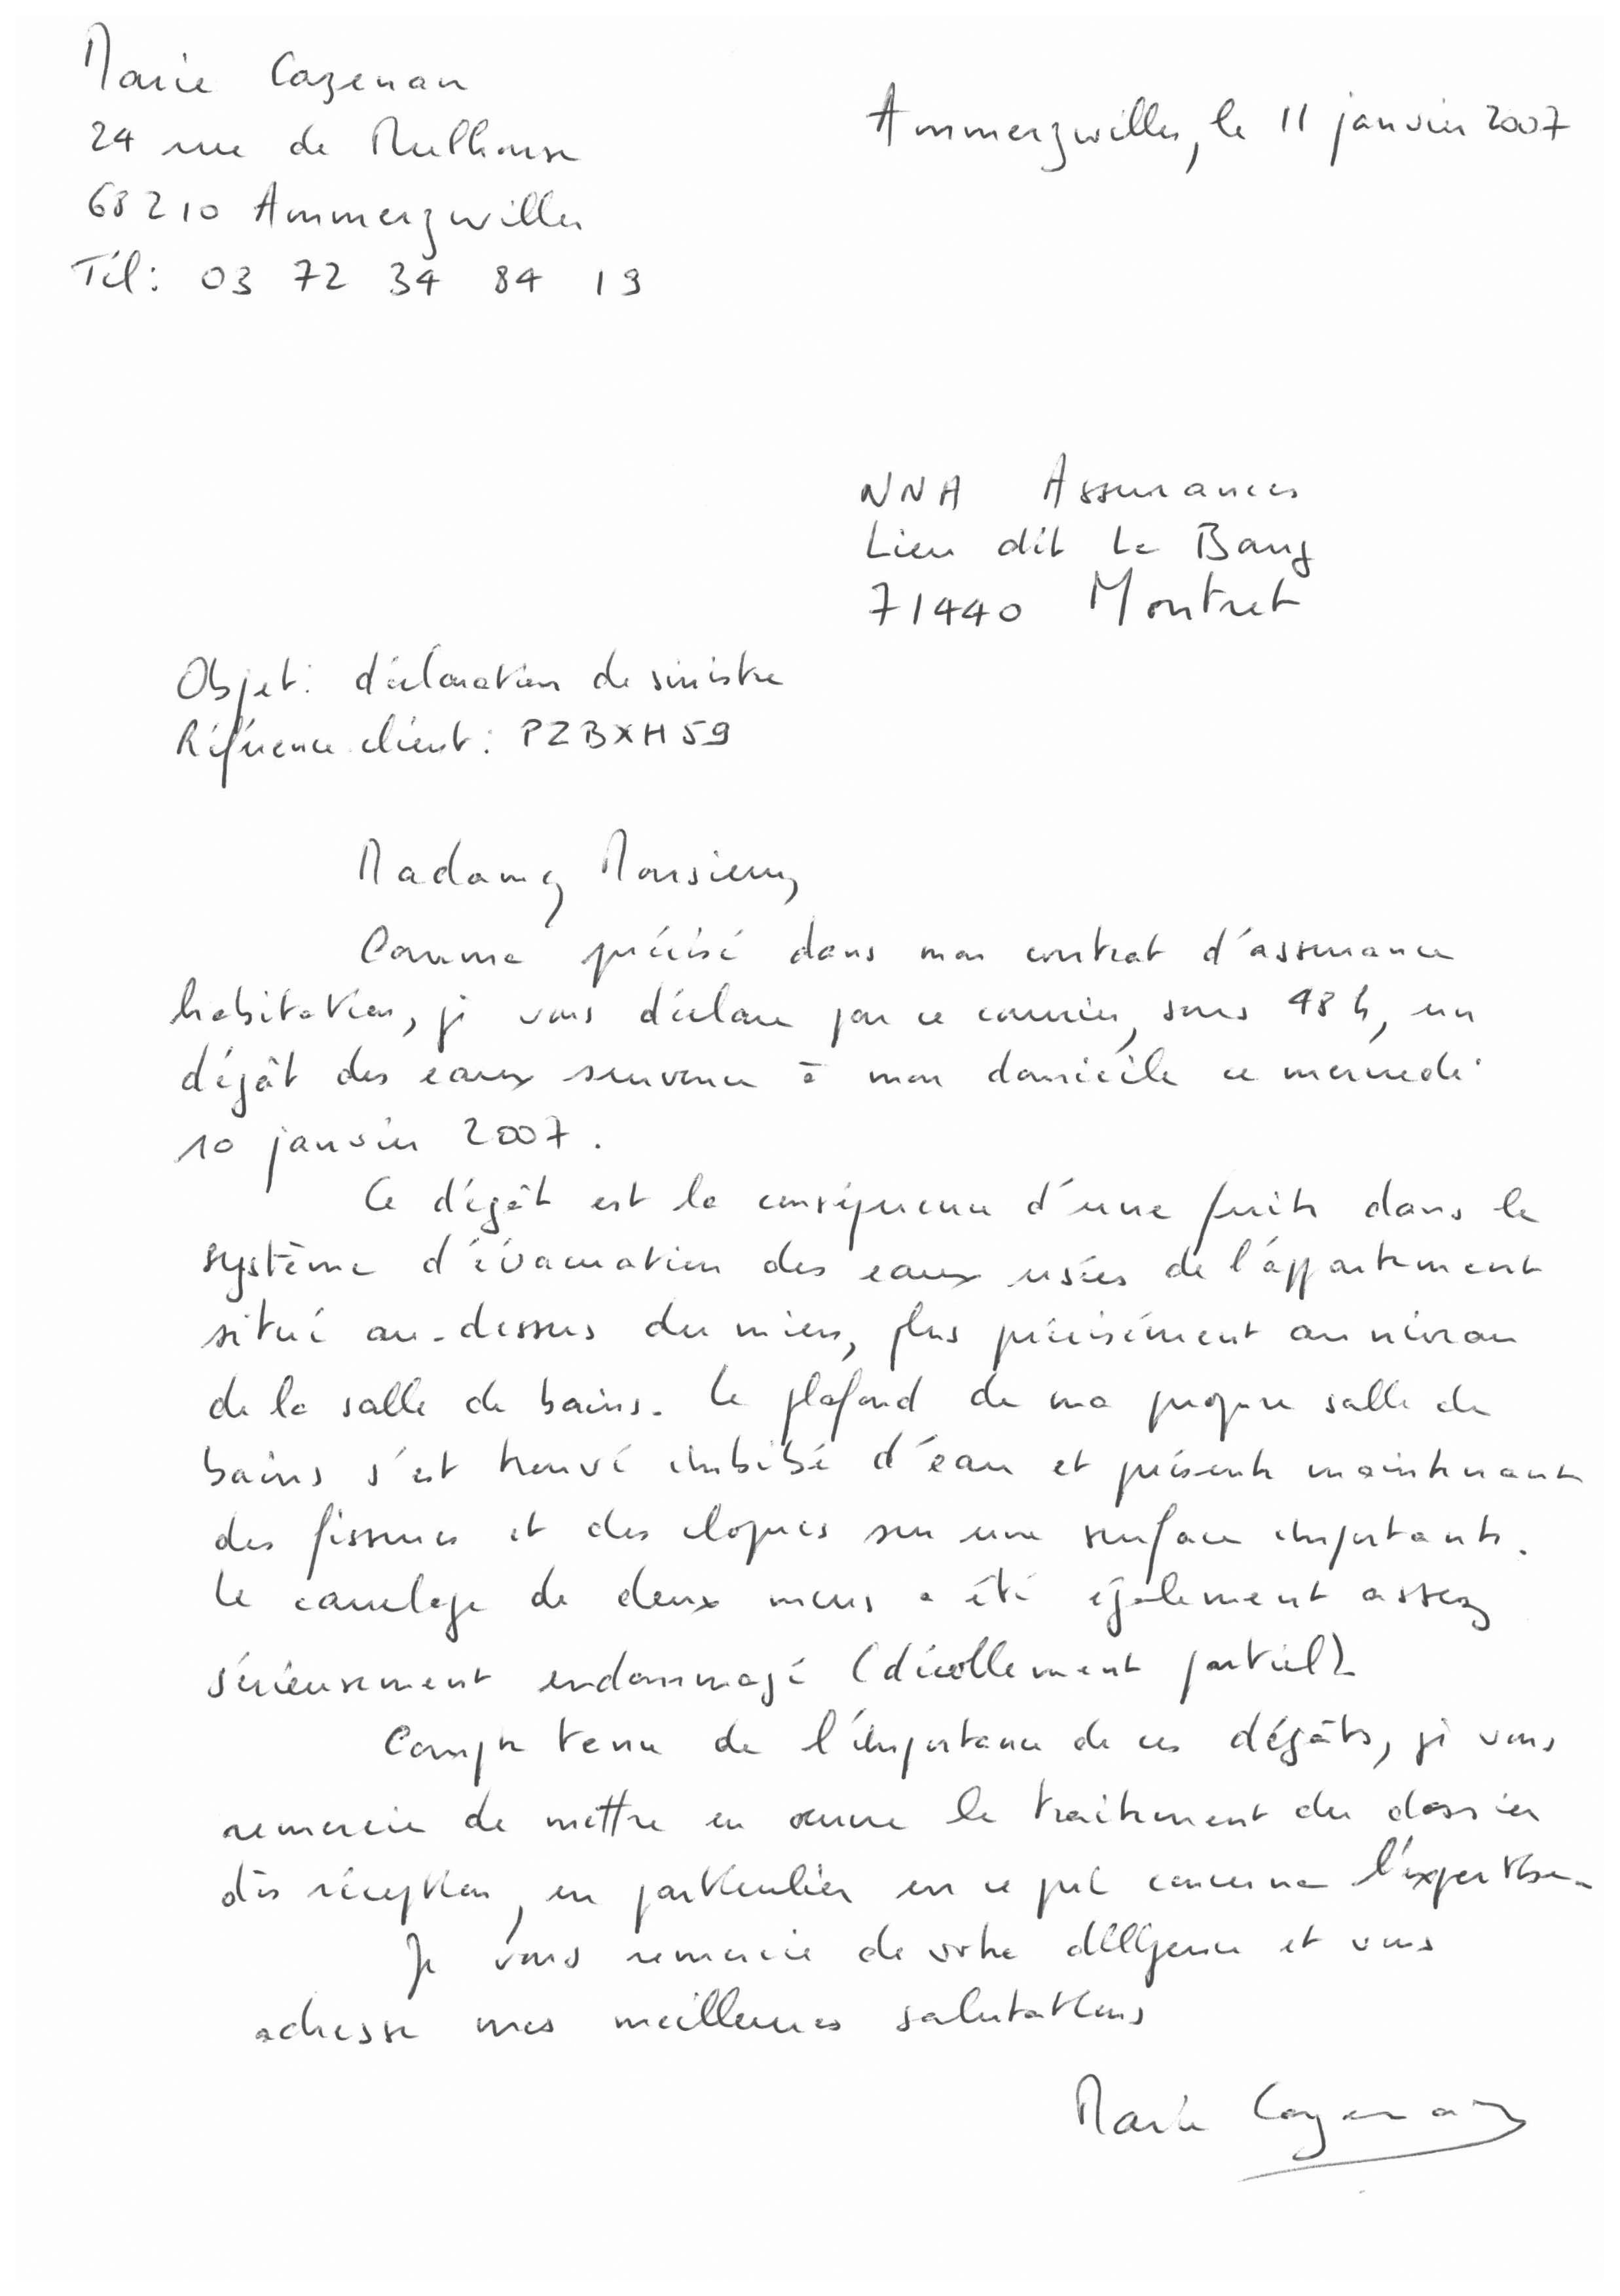 Marie Cazenan
24 rue de Mulhouse
68210 Ammerzwiller
Tél: 03 72 34 84 19
Ammerzwiller, le 11 janvier 2007
NNA Assurances
Lieu dit Le Bourg
71440 Montret
Objet: déclaration de sinistre
Référence client: PZBXH59
Madame, Monsieur,
Comme précisé dans mon contrat d'assurance
habitation, je vous déclare par ce courrier, sous 48 h, un
dégât des eaux survenu à mon domicile ce mercredi
10 janvier 2007.
Ce dégât est la conséquence d'une fuite dans le
système d'évacuation des eaux usées de l'appartement
situé au-dessus du mien, plus précisément au niveau
de la salle de bains. Le plafond de ma propre salle de
bains s'est trouvé imbibé d'eau et présente maintenant
des fissures et des cloques sur une surface importante.
Le carrelage de deux murs a été également assez
sérieusement endommagé (décollement partiel).
Compte tenu de l'importance de ces dégâts, je vous
remercie de mettre en œuvre le traitement du dossier
dès réception, en particulier en ce qui concerne l'expertise.
Je vous remercie de votre diligence et vous
adresse mes meilleures salutations
Marie Cazenan